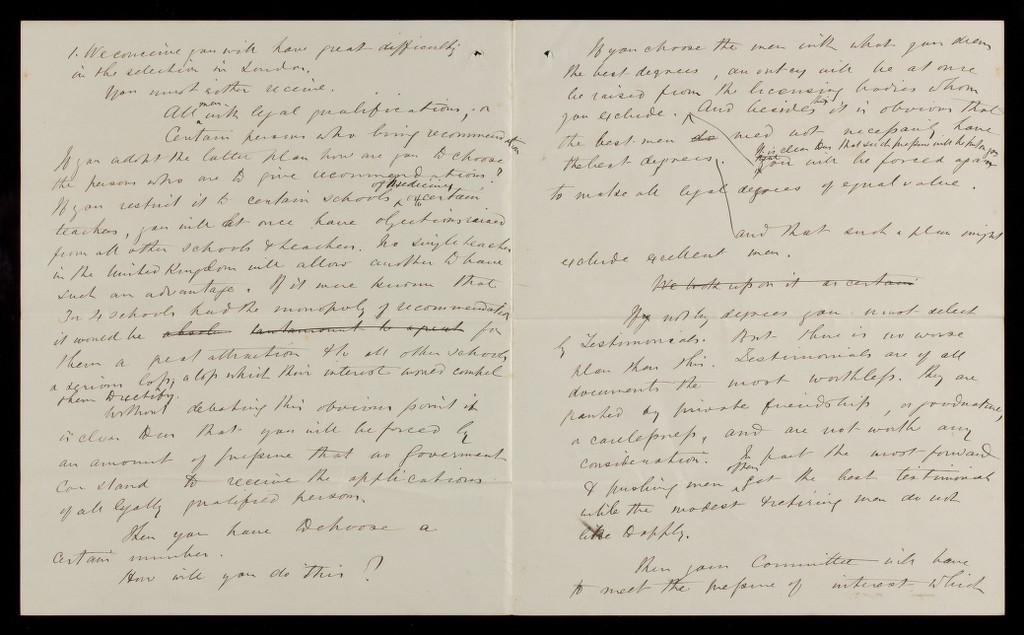 1. We conceive you will have great difficulty
in the selection in London.
You must either receive.
All men with legal qualifications; or
Certain persons who bring recommendation
If you adopt the latter plan how are you to choose
the persons who are to give recommendations?
If you restrict it to certain schools of medicine, or to certain
teachers, you will at once have objections raised
from all other schools & teachers. No single teacher
in the United Kingdom will allow another to have
such an advantage. If it were known that
3 or 4 schools had the monopoly of recommendation
it would be absolu tantamount to a great for
them a great attraction & to all other schools
a serious loss, a loss which their interest would compel
them
Without debating this obvious point it
is clear that you will be forced by
an amount of pressure that no Government
can stand to receive the applications
of all legally qualified persons.
Then you have to choose a
certain number.
How will you do this?
If you choose the men with what you deem
the best degrees, an outcry will be at once
be raised from the licensing bodies whom
you exclude. And besides this it is obvious that
the best men do need not necessarily have
the best degrees. It is clear that such pressure will be put on you
that you will be forced again
to make all legal degrees of equal value.
and that such a plan might
exclude excellent men.
We look upon it as certain
If not by degrees you must select
by Testimonials. But there is no worse
plan than this. Testimonials are of all
documents the most worthless. They are
granted by private friendship, or goodnature,
or carelessness, and are not worth any
consideration. In fact the most forward
& pushing men often get the best testimonials
while the modest & retiring men do not
like to apply.
Then your Committee will have
to meet the pressure of interest which